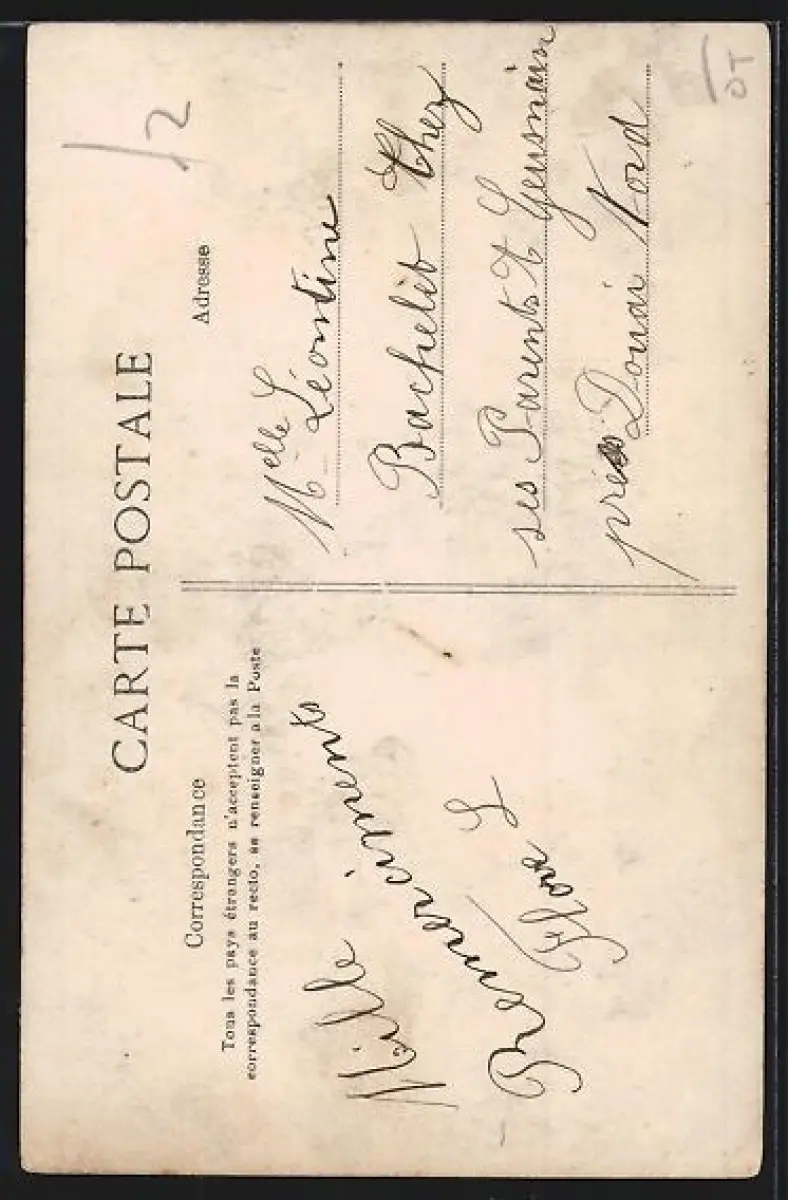 CARTE POSTALE
Correspondance
Tous les pays étrangers n'acceptent pas la
correspondance au recto, se renseigner à la Poste
Mille
Remerciments
Flore L
Adresse
Melle Léontine
Bachelet Chez
ses Parents
près Douai Nord
12